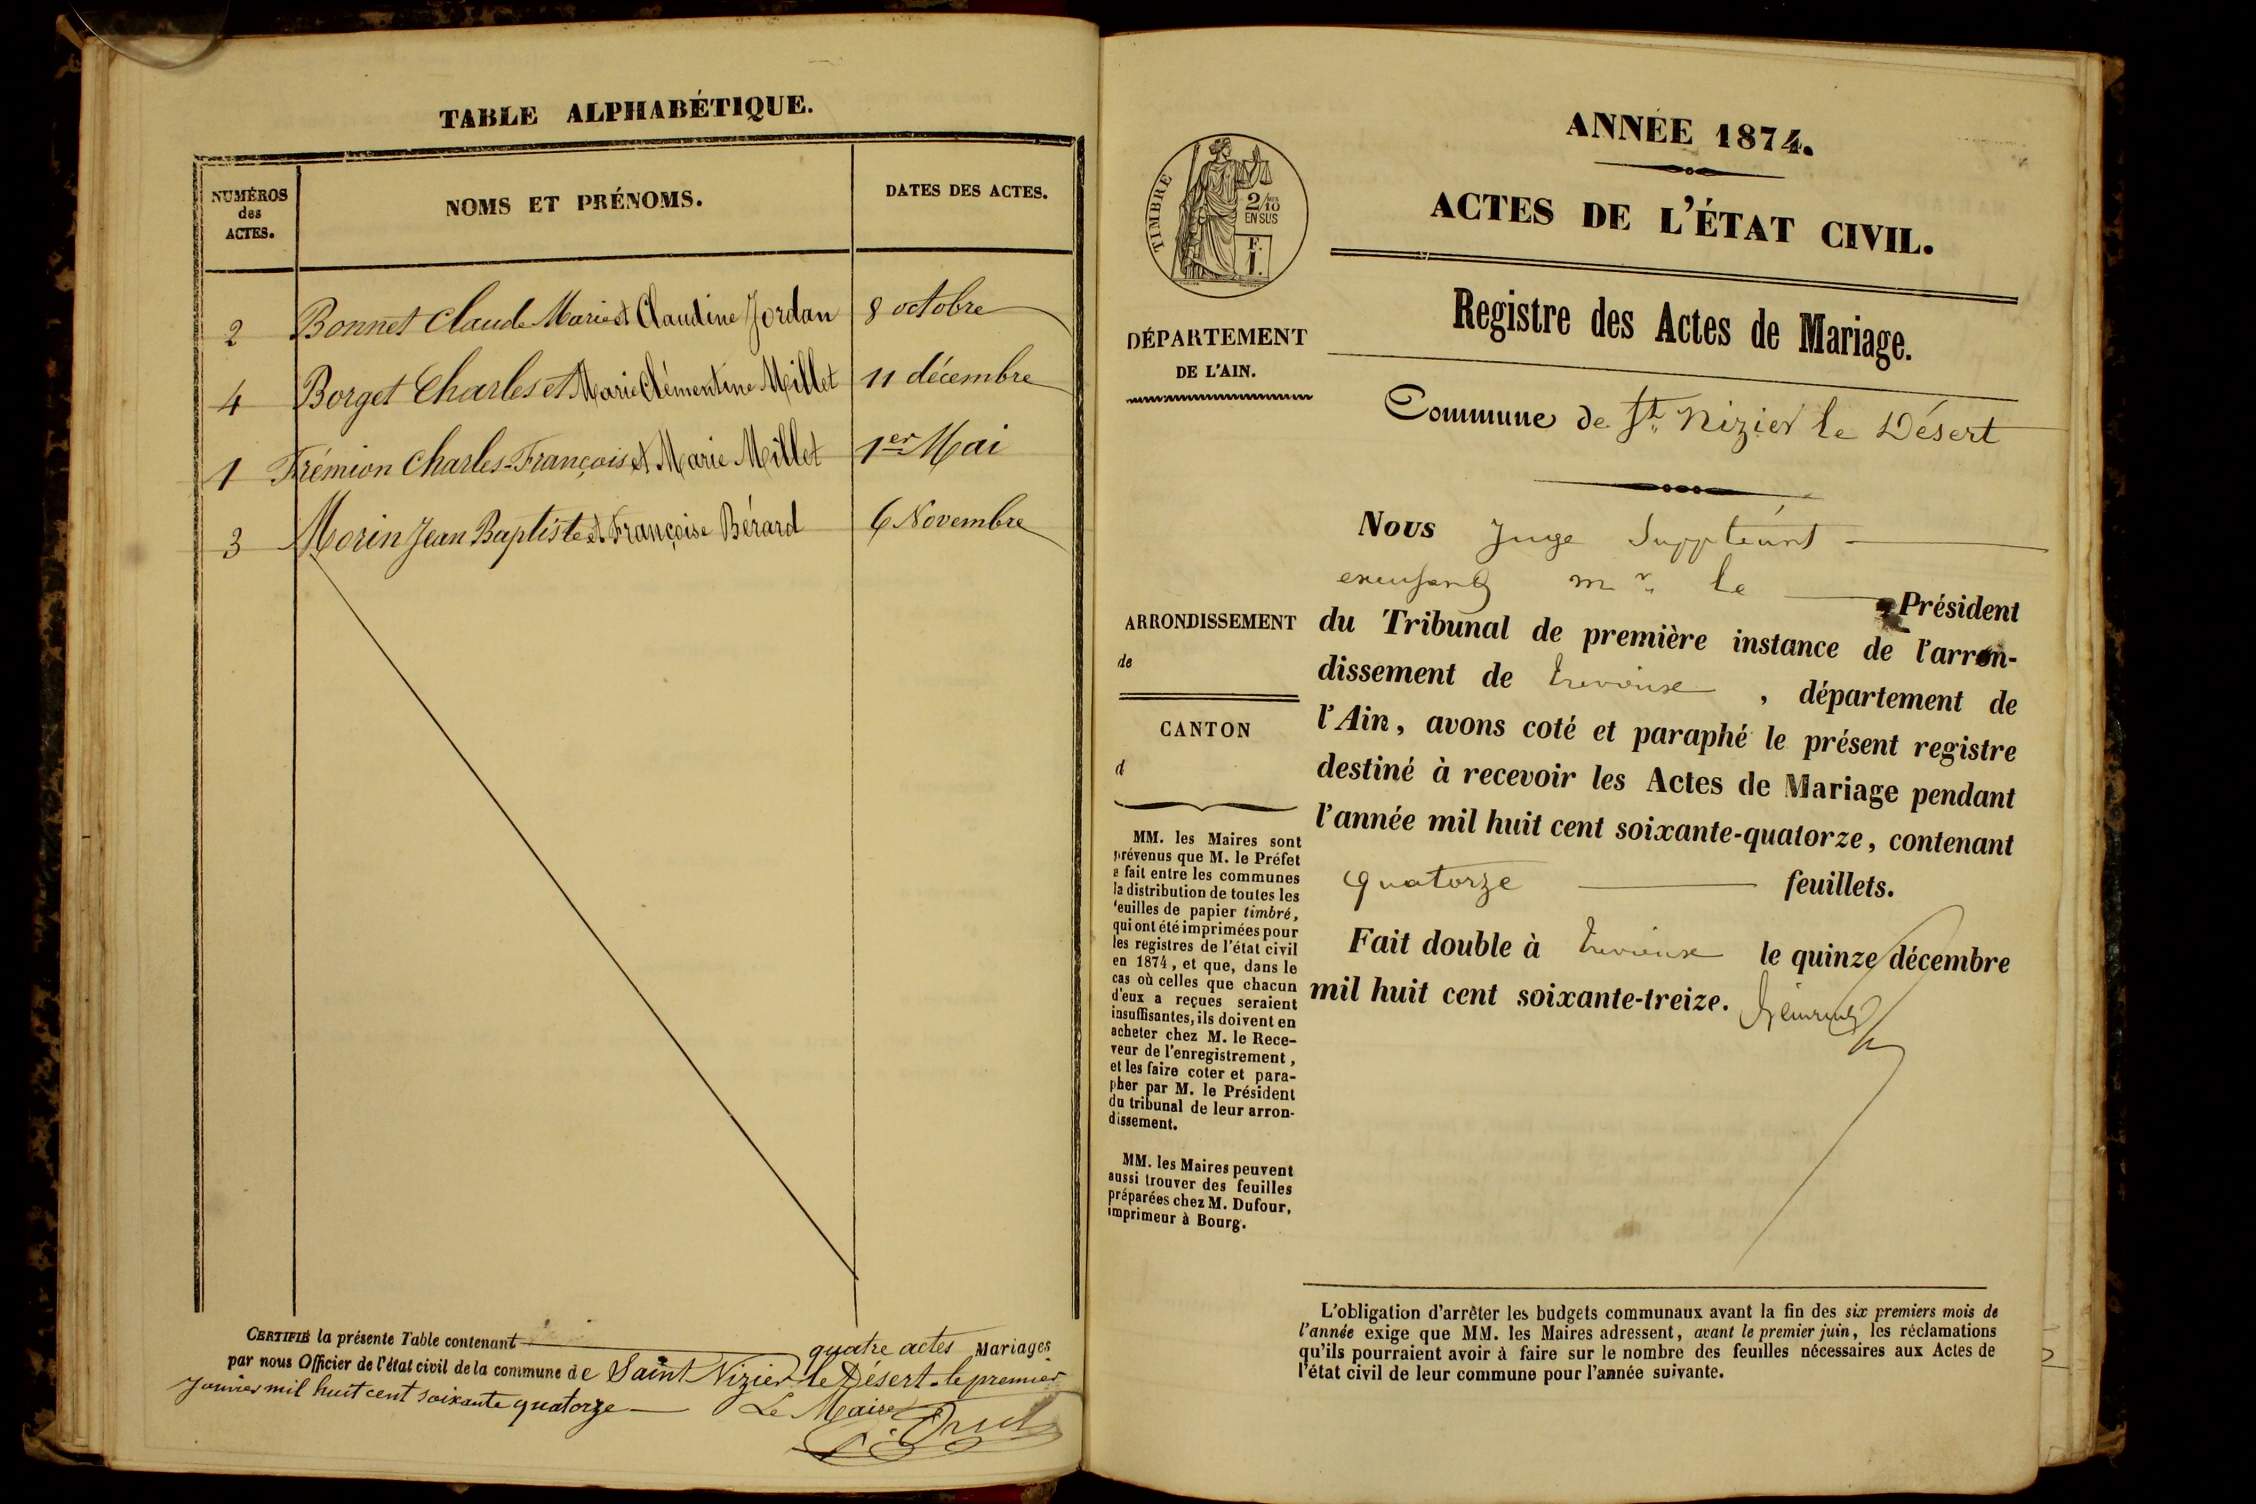 TABLE ALPHABÉTIQUE.
NUMÉROS
des
ACTES.
NOMS ET PRÉNOMS.
DATES DES ACTES.
2 Bonnet Claude Marie et Claudine Jordan 8 octobre
4 Borget Charles et Marie Clémentine Millet 11 décembre
1 Frémion Charles-François et Marie Millet 1er Mai
3 Morin Jean Baptiste et Françoise Bérard 6 Novembre
CERTIFIÉ la présente Table contenant quatre actes Mariages
par nous Officier de l'état civil de la commune de Saint Nizier le Désert. le premier
Janvier mil huit cent soixante quatorze Le Maire
ANNÉE 1874.
ACTES DE L'ÉTAT CIVIL.
Registre des Actes de Mariage.
TIMBRE
2/10
EN SUS
F.
1.
DÉPARTEMENT
DE L'AIN.
Commune de St Nizier le Désert
Nous Juge Suppléant
mr le Président
du Tribunal de première instance de l'arron-
dissement de trevoux, département de
l'Ain, avons coté et paraphé le présent registre
destiné à recevoir les Actes de Mariage pendant
l'année mil huit cent soixante-quatorze, contenant
quatorze feuillets.
Fait double à trevoux le quinze décembre
mil huit cent soixante-treize.
ARRONDISSEMENT
de
CANTON
d
MM. les Maires sont
prévenus que M. le Préfet
a fait entre les communes
la distribution de toutes les
feuilles de papier timbré,
qui ont été imprimées pour
les registres de l'état civil
en 1874, et que, dans le
cas où celles que chacun
d'eux a reçues seraient
insuffisantes, ils doivent en
acheter chez M. le Rece-
veur de l'enregistrement,
et les faire coter et para-
pher par M. le Président
du tribunal de leur arron-
dissement.
MM. les Maires peuvent
aussi trouver des feuilles
préparées chez M. Dufour,
imprimeur à Bourg.
L'obligation d'arrêter les budgets communaux avant la fin des six premiers mois de
l'année exige que MM. les Maires adressent, avant le premier juin, les réclamations
qu'ils pourraient avoir à faire sur le nombre des feuilles nécessaires aux Actes de
l'état civil de leur commune pour l'année suivante.